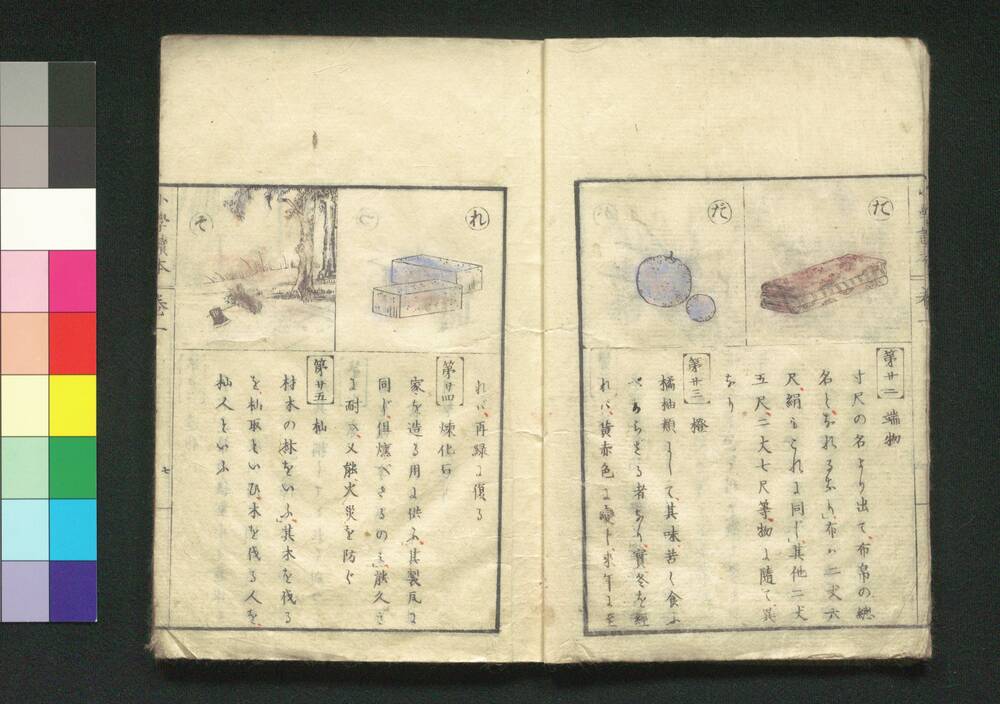 た
だ
第廿二 端物
寸尺の名より出て、布帛の總
名となれるなり、布ハ二丈六
尺、絹もこれに同じ、其他二丈
五尺、二丈七尺等、物に隨て異
なり
第廿三 橙
橘柚類にして、其味苦く食ふ
べからざる者なり、實冬を經
れバ、黄赤色に變じ、來年に至
れ
そ
れバ、再緑に復る
第廿四 煉化石
家を造る用に供ふ、其製瓦に
同じ、但燻べざるのミ、能久き
に耐へ、又能火災を防ぐ
第廿五 杣
材木の林をいふ、其木を伐る
を、杣取といひ、木を伐る人を、
杣人といふ
七